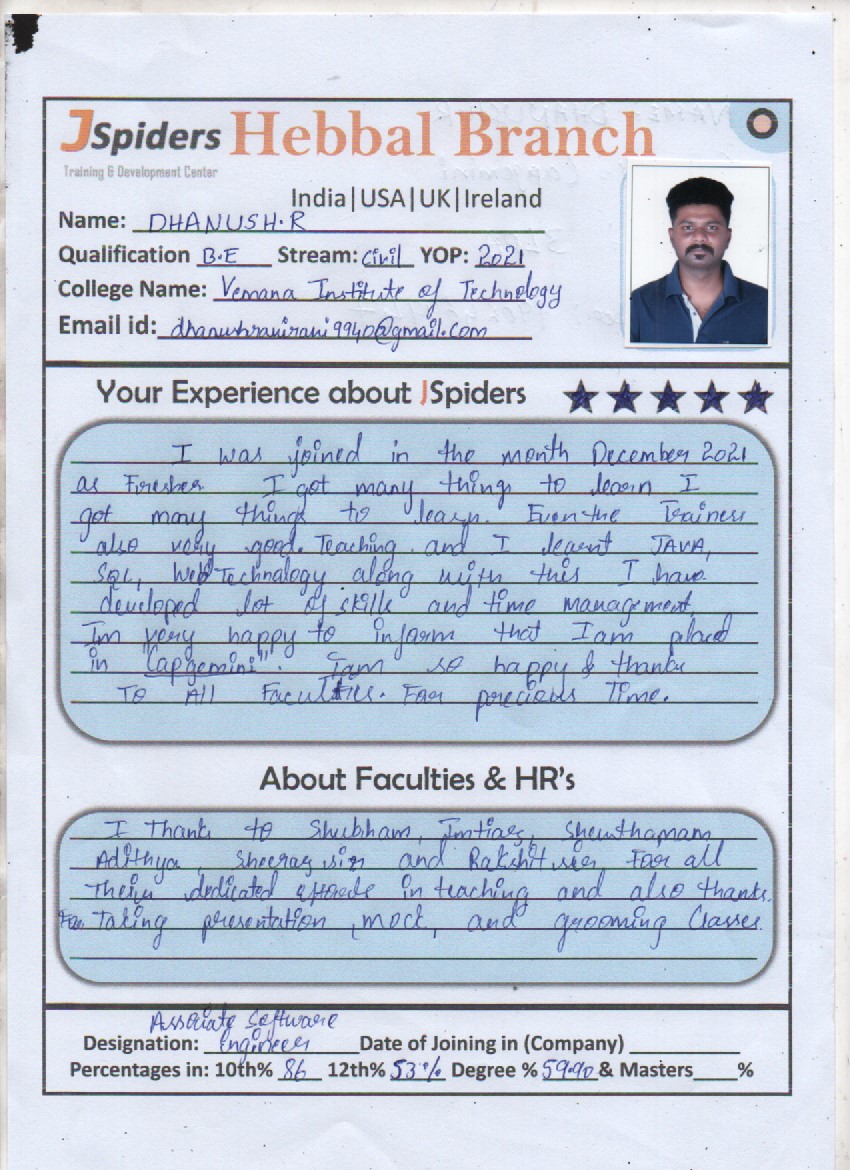 JSpiders Hebbal Branch
Training & Development Center
India|USA|UK|Ireland
Name: DHANUSH.R
Qualification B.E Stream: Civil YOP: 2021
College Name: Vemana Institute of Technology
Email id: dhanushravirani9940@gmail.com
Your Experience about JSpiders
I was joined in the month December 2021
as Fresher I got many thing to learn I
got many things to learn. Even the Trainers
also very good. Teaching. and I learnt JAVA,
SQL, Web Technology along with this I have
developed lot of skills and time management,
Im very happy to inform that I am placed
in "Capgemini". Iam so happy & thanks
To All Faculties. For precious Time.
About Faculties & HR's
I Thank to Shubham, Imtiaz,
Adithya, Sheeraz sir and Rakshit sir, For all
Their dedicated in teaching and also thanks.
For Taking presentation, mock, and grooming Classes.
Associate Software
Designation: Engineer Date of Joining in (Company)
Percentages in: 10th% 86 12th% 53% Degree % 59.90 & Masters %